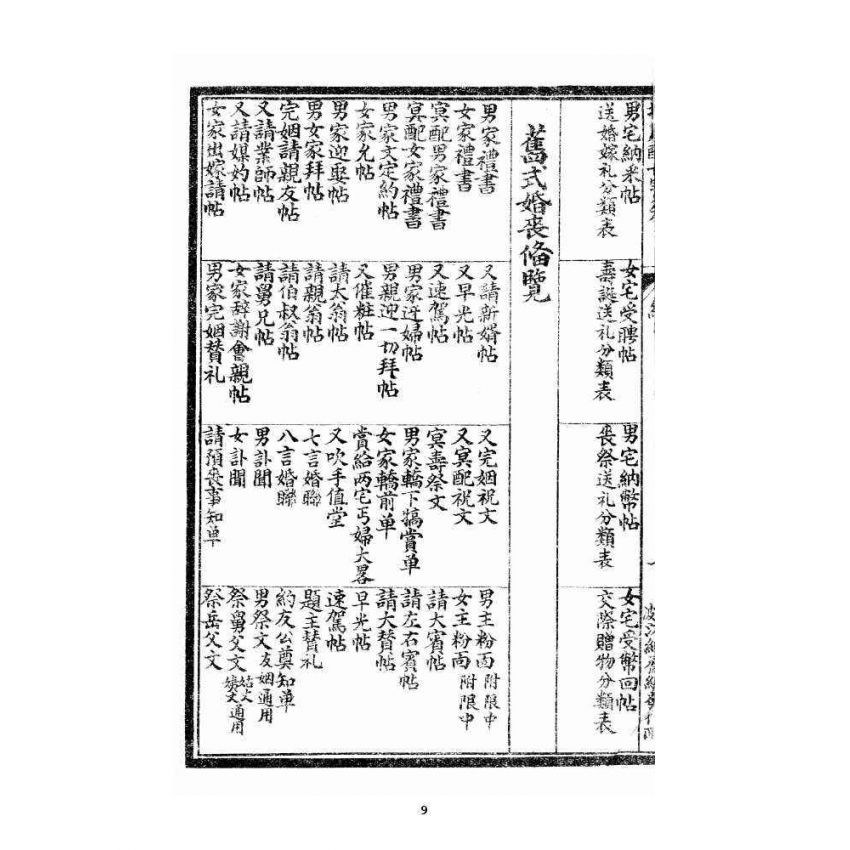 男宅納采帖
女宅受聘帖
男宅納幣帖
女宅受幣回帖
送婚嫁礼分類表
壽誕送礼分類表
喪祭送礼分類表
交際贈物分類表
舊式婚喪俻覽
男家禮書
女家禮書
冥配男家禮書
冥配女家禮書
男家文定約帖
女家允帖
男家迎娶帖
男女家拜帖
完姻請親友帖
又請業師帖
又請媒妁帖
女家出嫁請帖
又請新婿帖
又早光帖
又速駕帖
男家迓婦帖
男親迎一切拜帖
又催粧帖
請太翁帖
請親翁帖
請伯叔翁帖
請舅兄帖
女家辞謝會親帖
男家完姻賛礼
又完姻祝文
又冥配祝文
冥壽祭文
男家轎下犒賞单
女家轎前单
賞給両宅丐婦大畧
又吹手值堂
七言婚聯
八言婚聯
男訃聞
女訃聞
請預喪事知单
男主粉面 附限中
女主粉面 附限中
請大賓帖
請左右賓帖
請大賛帖
早光帖
速駕帖
題主賛礼
約友公奠知单
男祭文 友姻通用
祭舅父文 姑丈 姨丈 通用
祭岳父文
9